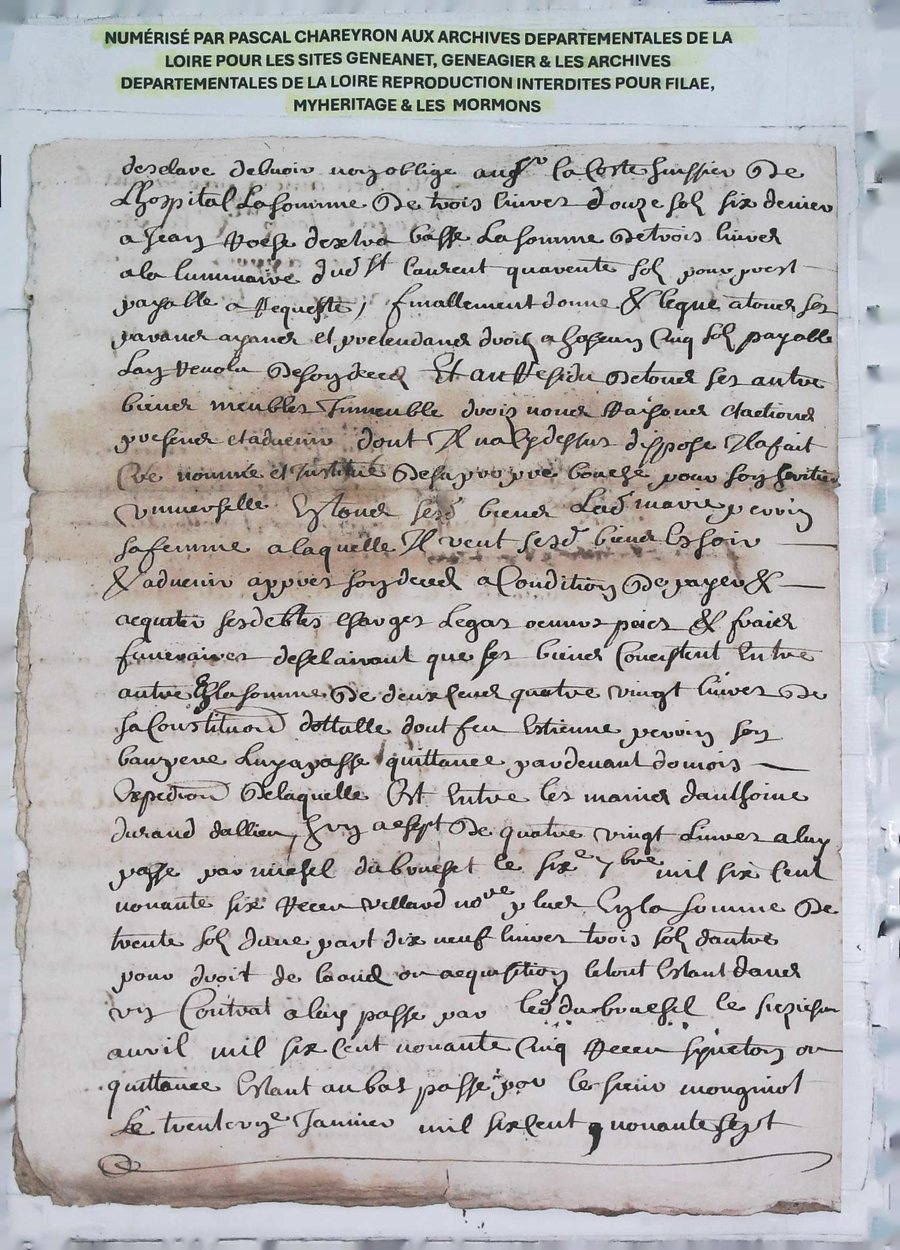 NUMÉRISÉ PAR PASCAL CHAREYRON AUX ARCHIVES DEPARTEMENTALES DE LA
LOIRE POUR LES SITES GENEANET, GENEAGIER & LES ARCHIVES
DEPARTEMENTALES DE LA LOIRE REPRODUCTION INTERDITES POUR FILAE,
MYHERITAGE & LES MORMONS
desclare debuoir non oblige au sr la Coste huissier de
Lhospital La somme de trois livres douze solz six denier
a Jean Roche desxtra basse La somme de trois livres
a la luminaire dud St laurent quarente solz pour prest
payable a Requeste, finallement donne & legue a tous ses
parans ayans et pretendans droit a hoseun Cinq solz payable
Lan Revolu de son deced Et au Residu de tous ses autre
biens meubles Immeuble drois noms Raisons et actions
presens et aduenir dont Il na Cy dessus dispose Il a fait
Cree nomme et Institue de sa propre bouche pour son heritiere
vniuerselle En tous sesd biens Lad marie perrin
sa femme a laquelle Il veut sesd biens Eschoir
& aduenir appres son deced a Condition de payer &
aquiter ses debtes charges Legas oeuures pies & frais
funeraires desclairant que ses biens Concistent Entre
autre En la somme de deux Cens quatre vingt livres de
sa Constitution dottalle dont feu Estienne perrin son
beaupere Luy a passe quittance pardeuant demois
Expedition de laquelle Est Entre les mains danthoine
durand dallieu, de quatre vingt Livres a luy
passe par michel dubruchet le sixe 7bre mil six Cent
nonante six Receu Vellard nore plus En la somme de
trente solz dune part dix neuf livres trois solz dautre
pour droit de laoud ou acquisition letout Estant dans
vn Contrat a luy passe par led dubruchet le seziesme
auril mil six Cent nonante Cinq Receu Simeton ou
quittance Estant au bas passe par le sieur monginot
Le trente vne Januier mil six Cent nonante sept